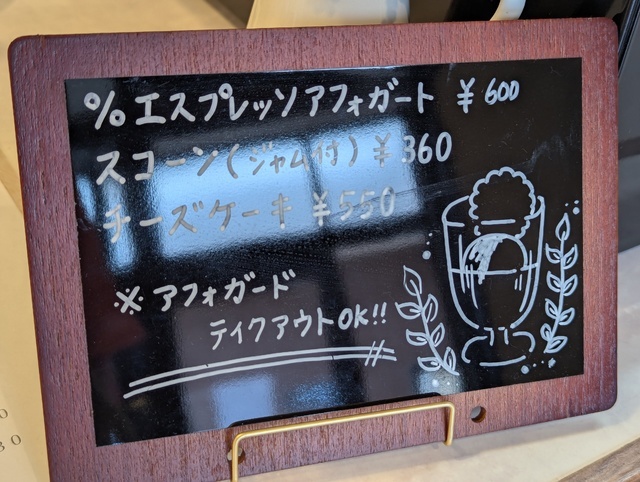 % エスプレッソアフォガート ¥600
スコーン(ジャム付) ¥360
チーズケーキ ¥550
※ アフォガード
テイクアウトOK!!